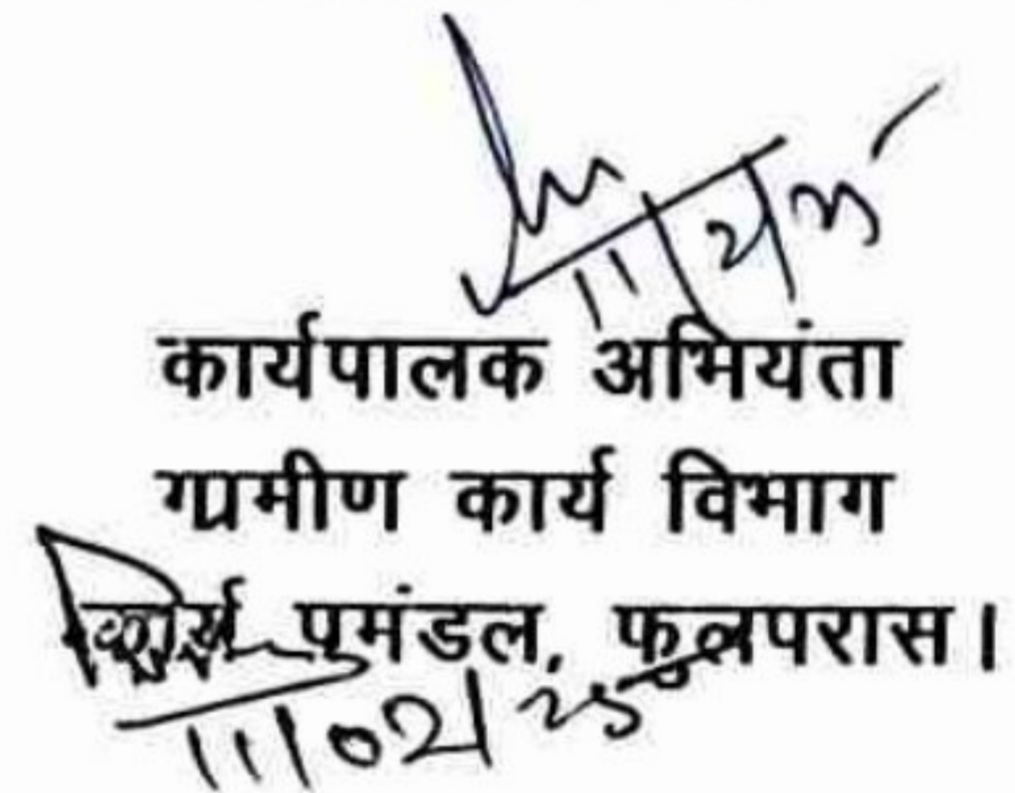 11/2/25
कार्यपालक अभियंता
ग्रामीण कार्य विभाग
कार्य प्रमंडल, फुलपरास।
11/02/25